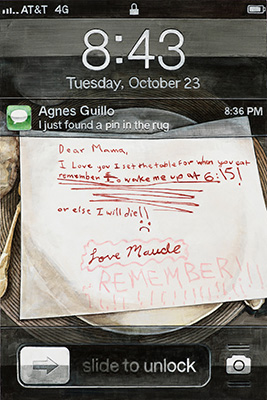 AT&T 4G
8:43
Tuesday, October 23
Agnes Guillo 8:36 PM
I just found a pin in the rug
Dear Mama,
I Love you I set the table for when you eat
remember to wake me up at 6:15!
or else I will die!!
Love Maude
REMEMBER!!!
slide to unlock